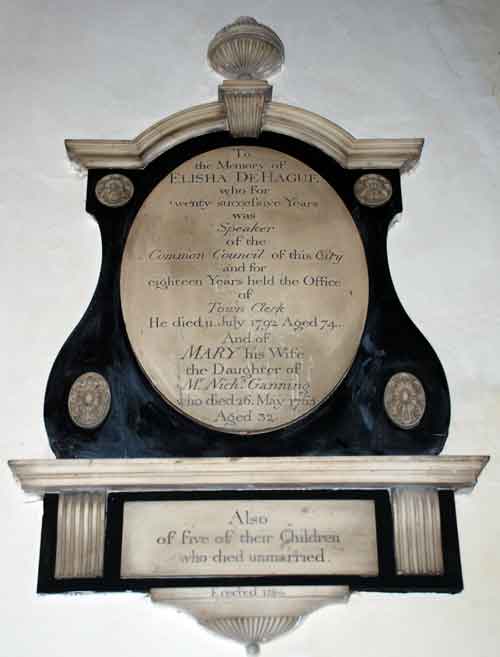 To
the Memory of
ELISHA DE HAGUE.
who for
twenty successive Years
was
Speaker
of the
Common Council of this City
and for
eighteen Years held the Office
of
Town Clerk
He died 11. July 1792 Aged 74.
And of
MARY his Wife
the Daughter of
Mr. Nichs. Ganning
who died 26. May
Aged 32.
Also
of five of their Children
who died unmarried.
Erected